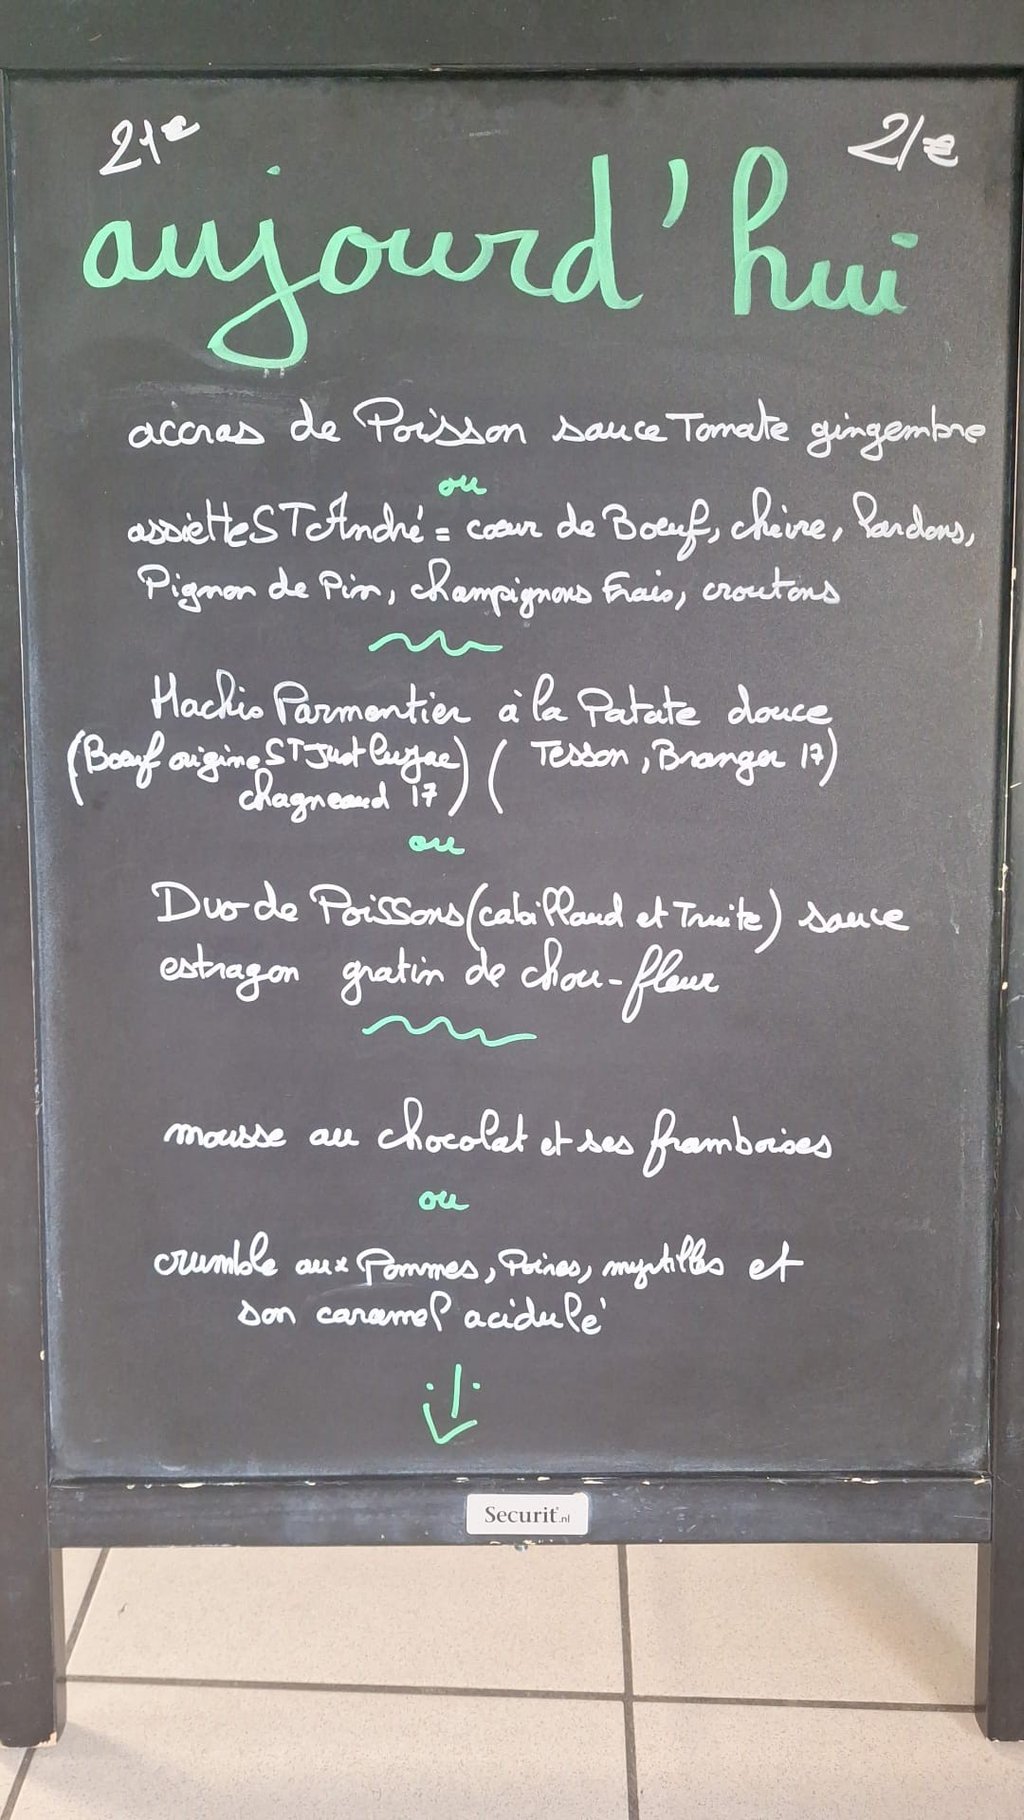 21€ 21€
aujourd'hui
accras de Poisson sauce Tomate gingembre
ou
assiette ST André = cœur de Boeuf, chèvre, lardons,
Pignon de Pin, champignons Frais, croutons
Hachis Parmentier à la Patate douce
(Boeuf origine ST Just Luzac) ( Tesson, Branger 17)
chagneaud 17
ou
Duo de Poissons (cabillaud et Truite) sauce
estragon gratin de chou-fleur
mousse au chocolat et ses framboises
ou
crumble aux Pommes, Poires, myrtilles et
son caramel acidulé
Securit.nl